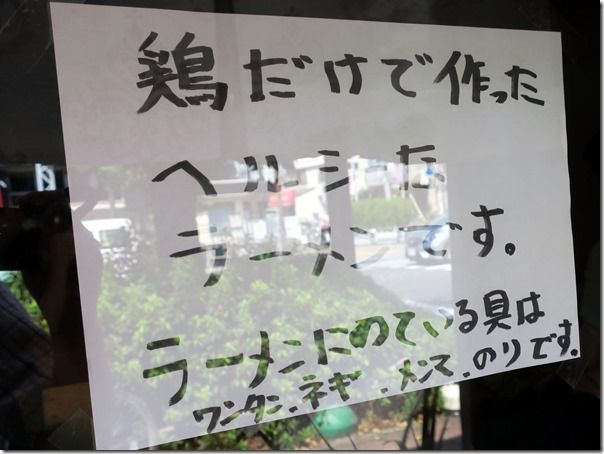 鶏だけで作った
ヘルシーな
ラーメンです。
ラーメンにのっている具は
ワンタン、ネギ、メンマ、のりです。